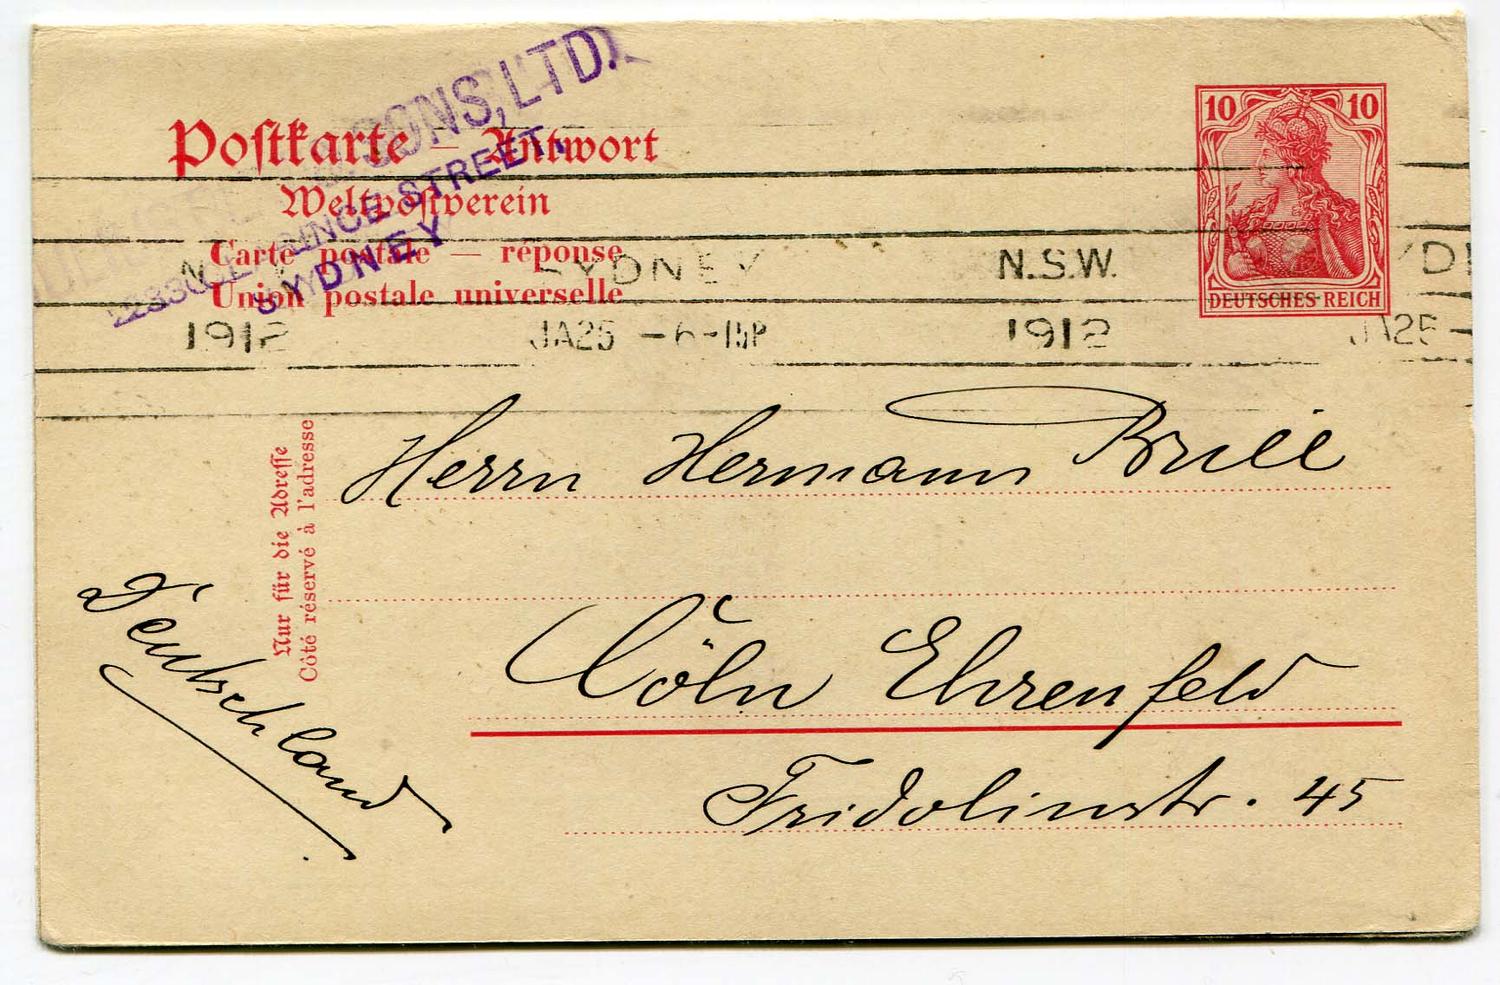 SONS, LTD.
CLARENCE STREET,
SYDNEY
Poſtkarte – Antwort
Weltpoſtverein
Carte postale — réponse
Union postale universelle
10 10
DEUTSCHES REICH
SYDNEY N.S.W. YD
1912 JA25 –6–15P 1912 JA25 –
Nur für die Adreſſe
Côté réservé à l'adresse
Herrn Hermann Brill
Cöln Ehrenfeld
Fridolinstr. 45
Deutschland